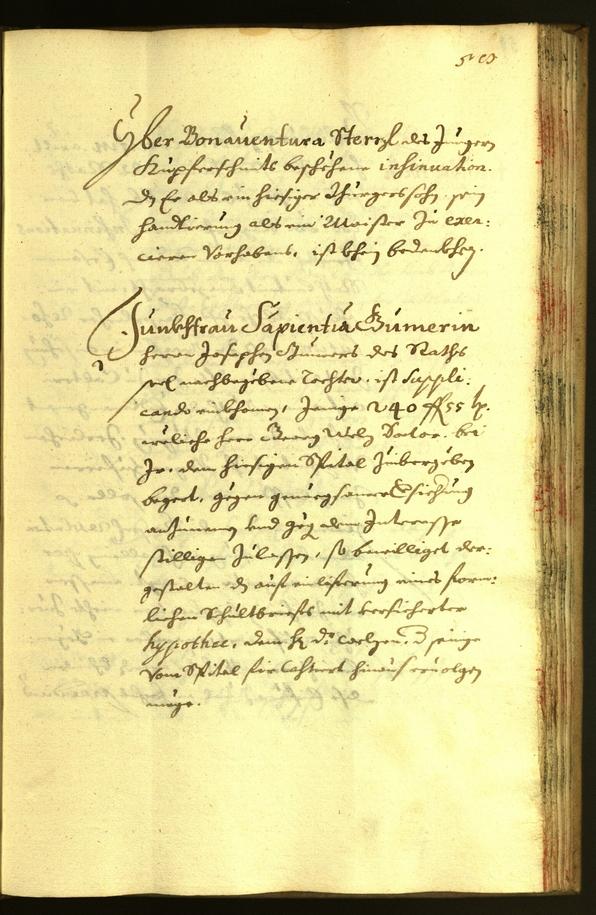 Yber Bonauentura Sterzl des Jungern
Kupferschmits beschehene insinuation.
dz Er als ein hiesiger Burgerssohn, sein
handtierung als ein Maister zu exer:
cieren Vorhabens, ist khein bedenkhen.
Junkhfrau Sapientia Gumerin
herrn Josephen Gumers des Raths
sel. nachgebne Tochter, ist Suppli:
cando einkhomen, Jenige 240 f 55 kr.
welliche herr Georg Welz Doctor. bei
Ir, dem hiesigen Spital zuibergeben
begert, gegen genuegsamer
anzunemen vnd gegen dem Interesse
stilligen zulassen, so bewilliget der:
gestalten dz auf einliferung eines form:
lichen Schultbriefs mit versicherter
hypothec, dem h. d. Welzen, d. jenige
vom Spital fir hinaus eruolgen
müge.